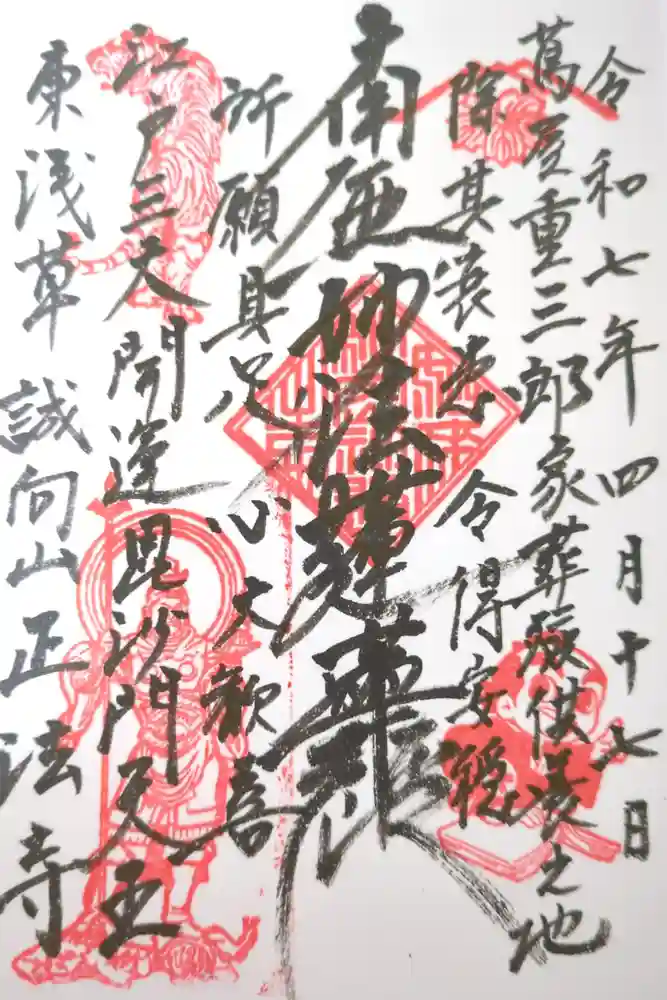 令和七年四月十七日
蔦屋重三郎家葬殮供養之地
除其衰患 令得安穏
南無妙法蓮華経
所願具足 心大歓喜
江戸三大開運毘沙門天王
東浅草 誠向山正法寺